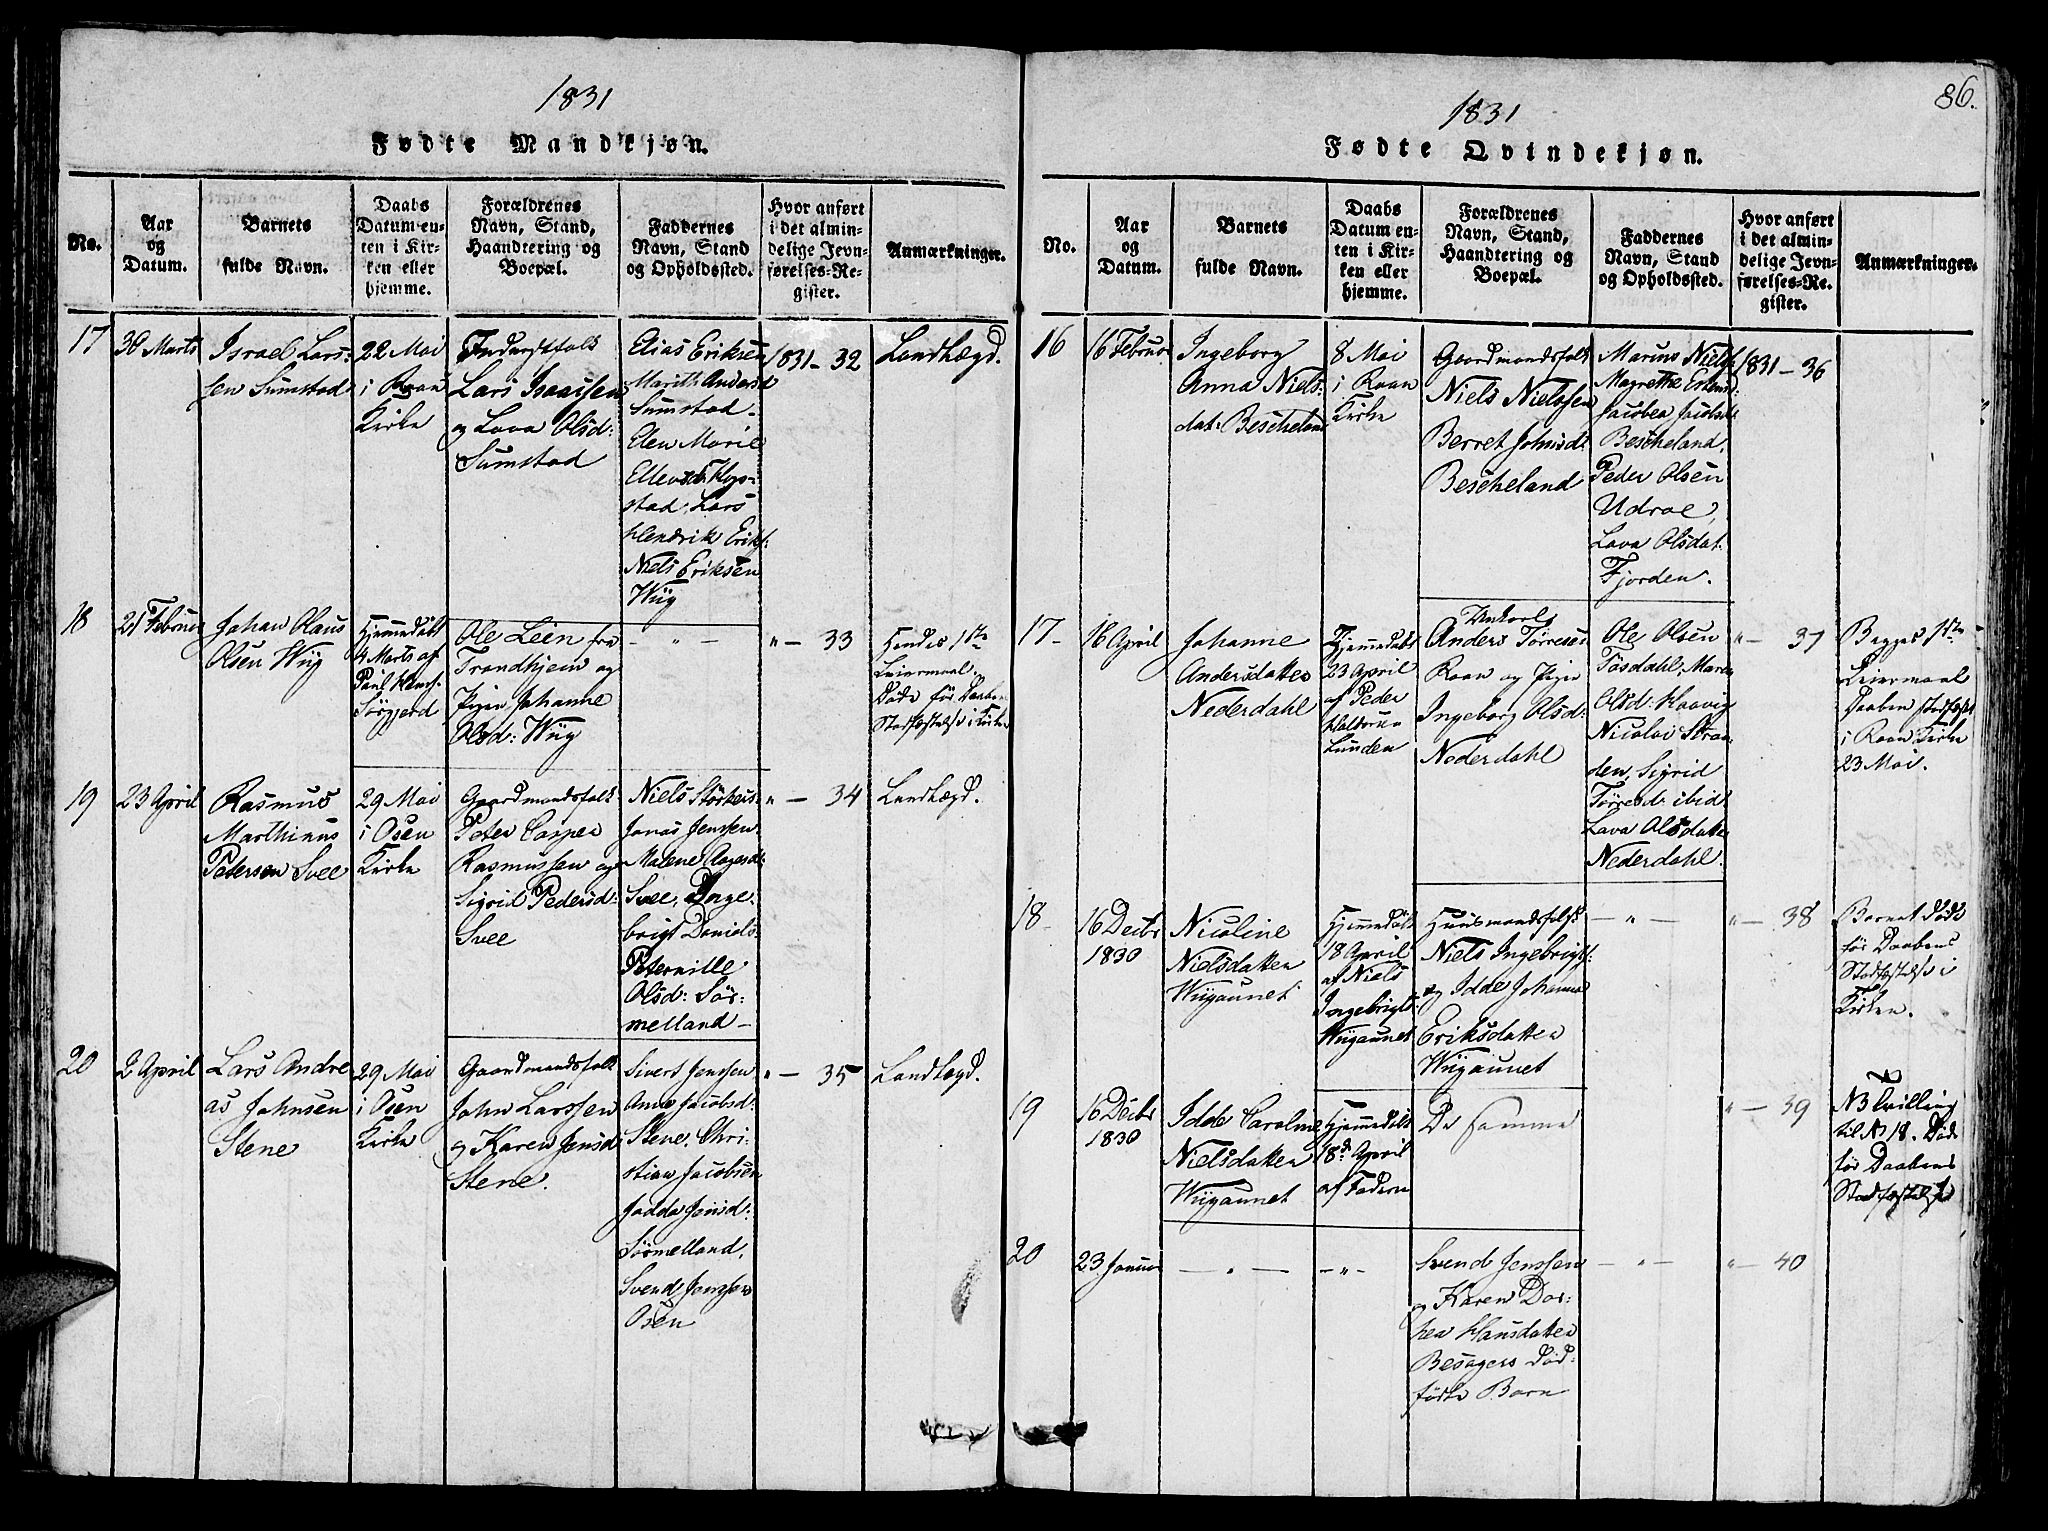 1831
Fødte Mandkjøn.
No.
Aar
og
Datum.
Barnets
fulde Navn.
Daabs
Datum en-
ten i Kir-
ken eller
hjemme.
Forældrenes
Navn, Stand,
Haandtering og
Boepæl.
Faddernes
Navn, Stand
og Opholdssted.
Hvor anført
i det almin-
delige Jevn-
førelses-Re-
gister.
Anmærkninger.
17
30 Marts
Israel Lars-
sen Sumstad
22 Mai
i Roan
Kirke
Lars Isaaksen
og Lava Olsd:
Sumstad
Elias Eriksen
Marith Andersd
Sumstad
Elen Marie
stad, Lars
Hendrik Eriks:
Niels Eriksen
Wiig
1831 - 32
Landlægd.
18
21 Februar
Johan Olaus
Olsen Wiig
Hjemmedøbt
4 Marts af
Paul Hans-
Sørgjerd
Ole Leen fra
Trondhjem og
Pigen Johanne
Olsd: Wiig
- „ -
„ - 33
Hendes 1ste
Leiermaal.
Døde før Daabens
Stadfæstelse i Kirken
19
23 April
Rasmus
Marthinus
Petersen Svee
29 Mai
i Osen
Kirke
Gaardmandsfolk
Peter Casper
Rasmussen og
Sigrid Pedersd:
Svee
Niels Størkers:
Jonas Jenssen
Malene Aagesd:
Svee, Inge-
brigt Daniels:
Peternille
Olsd: Sør-
melland -
„ - 34
Landlægd.
20
2 April
Lars Andre
as Johnsen
Stene
29 Mai
i Osen
Kirke
Gaardmandsfolk
John Larssen
og Karen Jensd
Stene.
Sivert Jenssen
Ane Jacobsd:
Stene, Chri-
stian Jacobsen
Jonsd:
Sørmelland,
Svend Jenssen
Osen
„ - 35
Landlægd.
86.
1831
Fødte Qvindekjøn.
No.
Aar
og
Datum.
Barnets
fulde Navn.
Daabs
Datum en-
ten i Kir-
ken eller
hjemme.
Forældrenes
Navn, Stand,
Haandtering og
Boepæl.
Faddernes
Navn, Stand
og Opholdssted.
Hvor anført
i det almin-
delige Jevn-
førelses-Re-
gister.
Anmærkninger.
16
16 Februar
Ingeborg
Anna Niels-
dat: Bescheland
8 Mai
i Roan
Kirke
Gaardmandsfolk
Niels Nielssen
Berret Johnsd:
Bescheland
Marius Niels:
Magrethe
Jacobea Jacobsd:
Bescheland,
Peder Olsen
Udroe,
Lava Olsdat:
Fjorden.
1831 - 36
17-
16 April
Johanne
Andersdatter
Nederdahl
Hjemmedøbt
23 April
af Peder
Haldorsen
Lunden
Unkarl
Anders Tørresen
Roan og Pigen
Ingeborg Olsd:
Nederdahl
Ole Olsen
Tosdahl, Maren
Olsd: Haavig
Nicolai Stran-
den, Sigrid
Tørresd: ibid
Lava Olsdatter
Nederdahl.
„ - 37
Begges 1ste
Leiermaal
Daaben stadfæstet
i Roan Kirke
23 Mai.
18-
16 Decbr
1830
Nicoline
Nielsdatter
Wiigaunet
Hjemmedøbt
18 April
af Niels
Ingebrigts:
Wiigaunet
Huusmandsfolk
Niels Ingebrigts:
og Idde Johanna
Eriksdatter
Wiigaunet
- „ -
„ - 38
Barnet Døde
før Daabens
Stadfæstelse i
Kirken.
19
16 Decbr
1830
Idde Caroline
Nielsdatter
Wiigaunet
Hjemmedøbt
18d. April
af Faderen
De samme
„ - 39
NB tvilling
til No 18. Døde
før Daabens
Stadfæstelse
20
23 Januar
- „ -
- „ -
Svend Jenssen
og Karen Dor-
thea Hansdatter
Besagers Død-
fødte Barn
- „ -
„ - 40